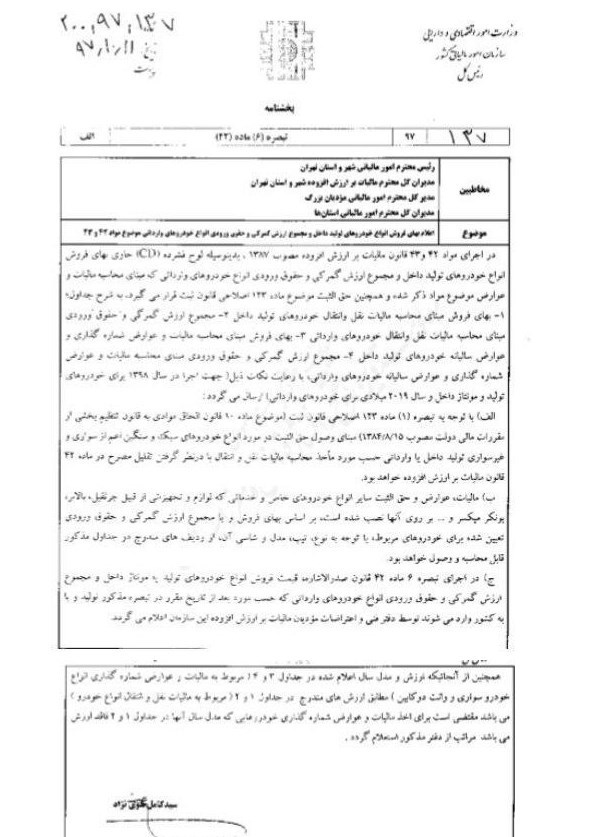 ۲۰۰,۹۷,۱۳۷
۹۷,۱۰,۱۱
وزارت امور اقتصادی و دارایی
سازمان امور مالیاتی کشور
رئیس کل
بخشنامه
۱۳۷ ۹۷ تبصره (۶) ماده (۴۲) الف
مخاطبین
رئیس محترم امور مالیاتی شهر و استان تهران
مدیران کل محترم مالیات بر ارزش افزوده شهر و استان تهران
مدیر کل محترم امور مالیاتی مؤدیان بزرگ
مدیران کل محترم امور مالیاتی استان‌ها
موضوع اعلام بهای فروش انواع خودروهای تولید داخل و مجموع ارزش گمرکی و حقوق ورودی انواع خودروهای وارداتی موضوع مواد ۴۲ و ۴۳
در اجرای مواد ۴۲ و ۴۳ قانون مالیات بر ارزش افزوده مصوب ۱۳۸۷، بدینوسیله لوح فشرده (CD) حاوی بهای فروش
انواع خودروهای تولید داخل و مجموع ارزش گمرکی و حقوق ورودی انواع خودروهای وارداتی که مبنای محاسبه مالیات و
عوارض موضوع مواد ذکر شده و همچنین حق الثبت موضوع ماده ۱۲۳ اصلاحی قانون ثبت قرار می گیرد، به شرح جداول؛
۱- بهای فروش مبنای محاسبه مالیات نقل وانتقال خودروهای تولید داخل ۲- مجموع ارزش گمرکی و حقوق ورودی
مبنای محاسبه مالیات نقل وانتقال خودروهای وارداتی ۳- بهای فروش مبنای محاسبه مالیات و عوارض شماره گذاری و
عوارض سالیانه خودروهای تولید داخل ۴- مجموع ارزش گمرکی و حقوق ورودی مبنای محاسبه مالیات و عوارض
شماره گذاری و عوارض سالیانه خودروهای وارداتی، با رعایت نکات ذیل( جهت اجرا در سال ۱۳۹۸ برای خودروهای
تولید و مونتاژ داخل و سال ۲۰۱۹ میلادی برای خودروهای وارداتی) ارسال می گردد :
الف) با توجه به تبصره (۱) ماده ۱۲۳ اصلاحی قانون ثبت (موضوع ماده ۱۰ قانون الحاق موادی به قانون تنظیم بخشی از
مقررات مالی دولت مصوب ۱۳۸۴/۸/۱۵) مبنای وصول حق الثبت در مورد انواع خودروهای سبک و سنگین اعم از سواری و
غیرسواری تولید داخل یا وارداتی حسب مورد مأخذ محاسبه مالیات نقل و انتقال با درنظر گرفتن تقلیل مصرح در ماده ۴۲
قانون مالیات بر ارزش افزوده خواهد بود.
ب) مالیات، عوارض و حق الثبت سایر انواع خودروهای خاص و خدماتی که لوازم و تجهیزاتی از قبیل جرثقیل، بالابر،
بونکر میکسر و ... بر روی آنها نصب شده است، بر اساس بهای فروش و یا مجموع ارزش گمرکی و حقوق ورودی
تعیین شده برای خودروهای مربوط، با توجه به نوع، تیپ، مدل و شاسی آن، از ردیف های مندرج در جداول مذکور
قابل محاسبه و وصول خواهد بود.
ج) در اجرای تبصره ۶ ماده ۴۲ قانون صدرالاشاره، قیمت فروش انواع خودروهای تولید یا مونتاژ داخل و مجموع
ارزش گمرکی و حقوق ورودی انواع خودروهای وارداتی که حسب مورد بعد از تاریخ مقرر در تبصره مذکور تولید و یا
به کشور وارد می شوند توسط دفتر فنی و اعتراضات مؤدیان مالیات بر ارزش افزوده این سازمان اعلام می گردد.
همچنین از آنجائیکه ارزش و مدل سال اعلام شده در جداول ۳ و ۴ ( مربوط به مالیات و عوارض شماره گذاری انواع
خودرو سواری و وانت دوکابین ) مطابق ارزش های مندرج در جداول ۱ و ۲ ( مربوط به مالیات نقل و انتقال انواع خودرو )
می باشد مقتضی است برای اخذ مالیات و عوارض شماره گذاری خودروهایی که مدل سال آنها در جداول ۱ و ۲ فاقد ارزش
می باشد مراتب از دفتر مذکور استعلام گردد .
سیدکامل تقوی نژاد